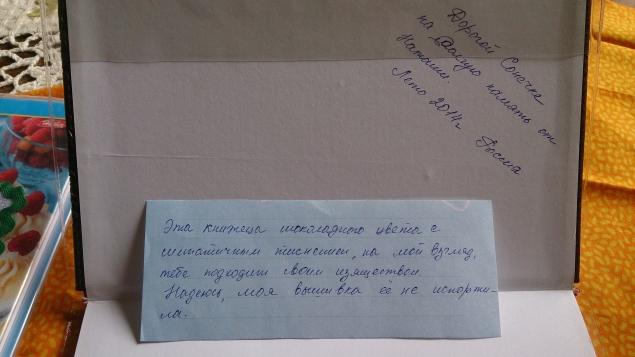 Дорогой Сонечке
на долгую память от
Наташи.
Лето 2014г Россия
Эта книжеца шоколадного цвета с
симпатичным тиснением, на мой взгляд,
тебе подходит своим изяществом
Надеюсь, моя вышивка её не испорти-
ла.